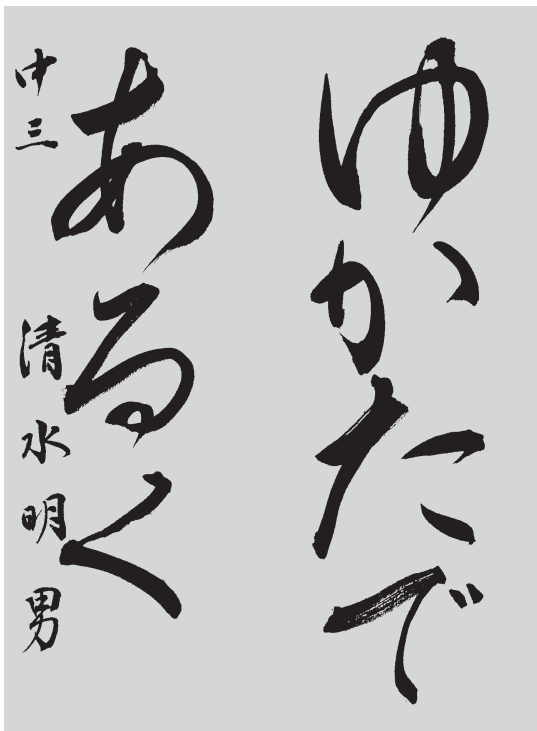 ゆかたで
あるく
中三 清水明男